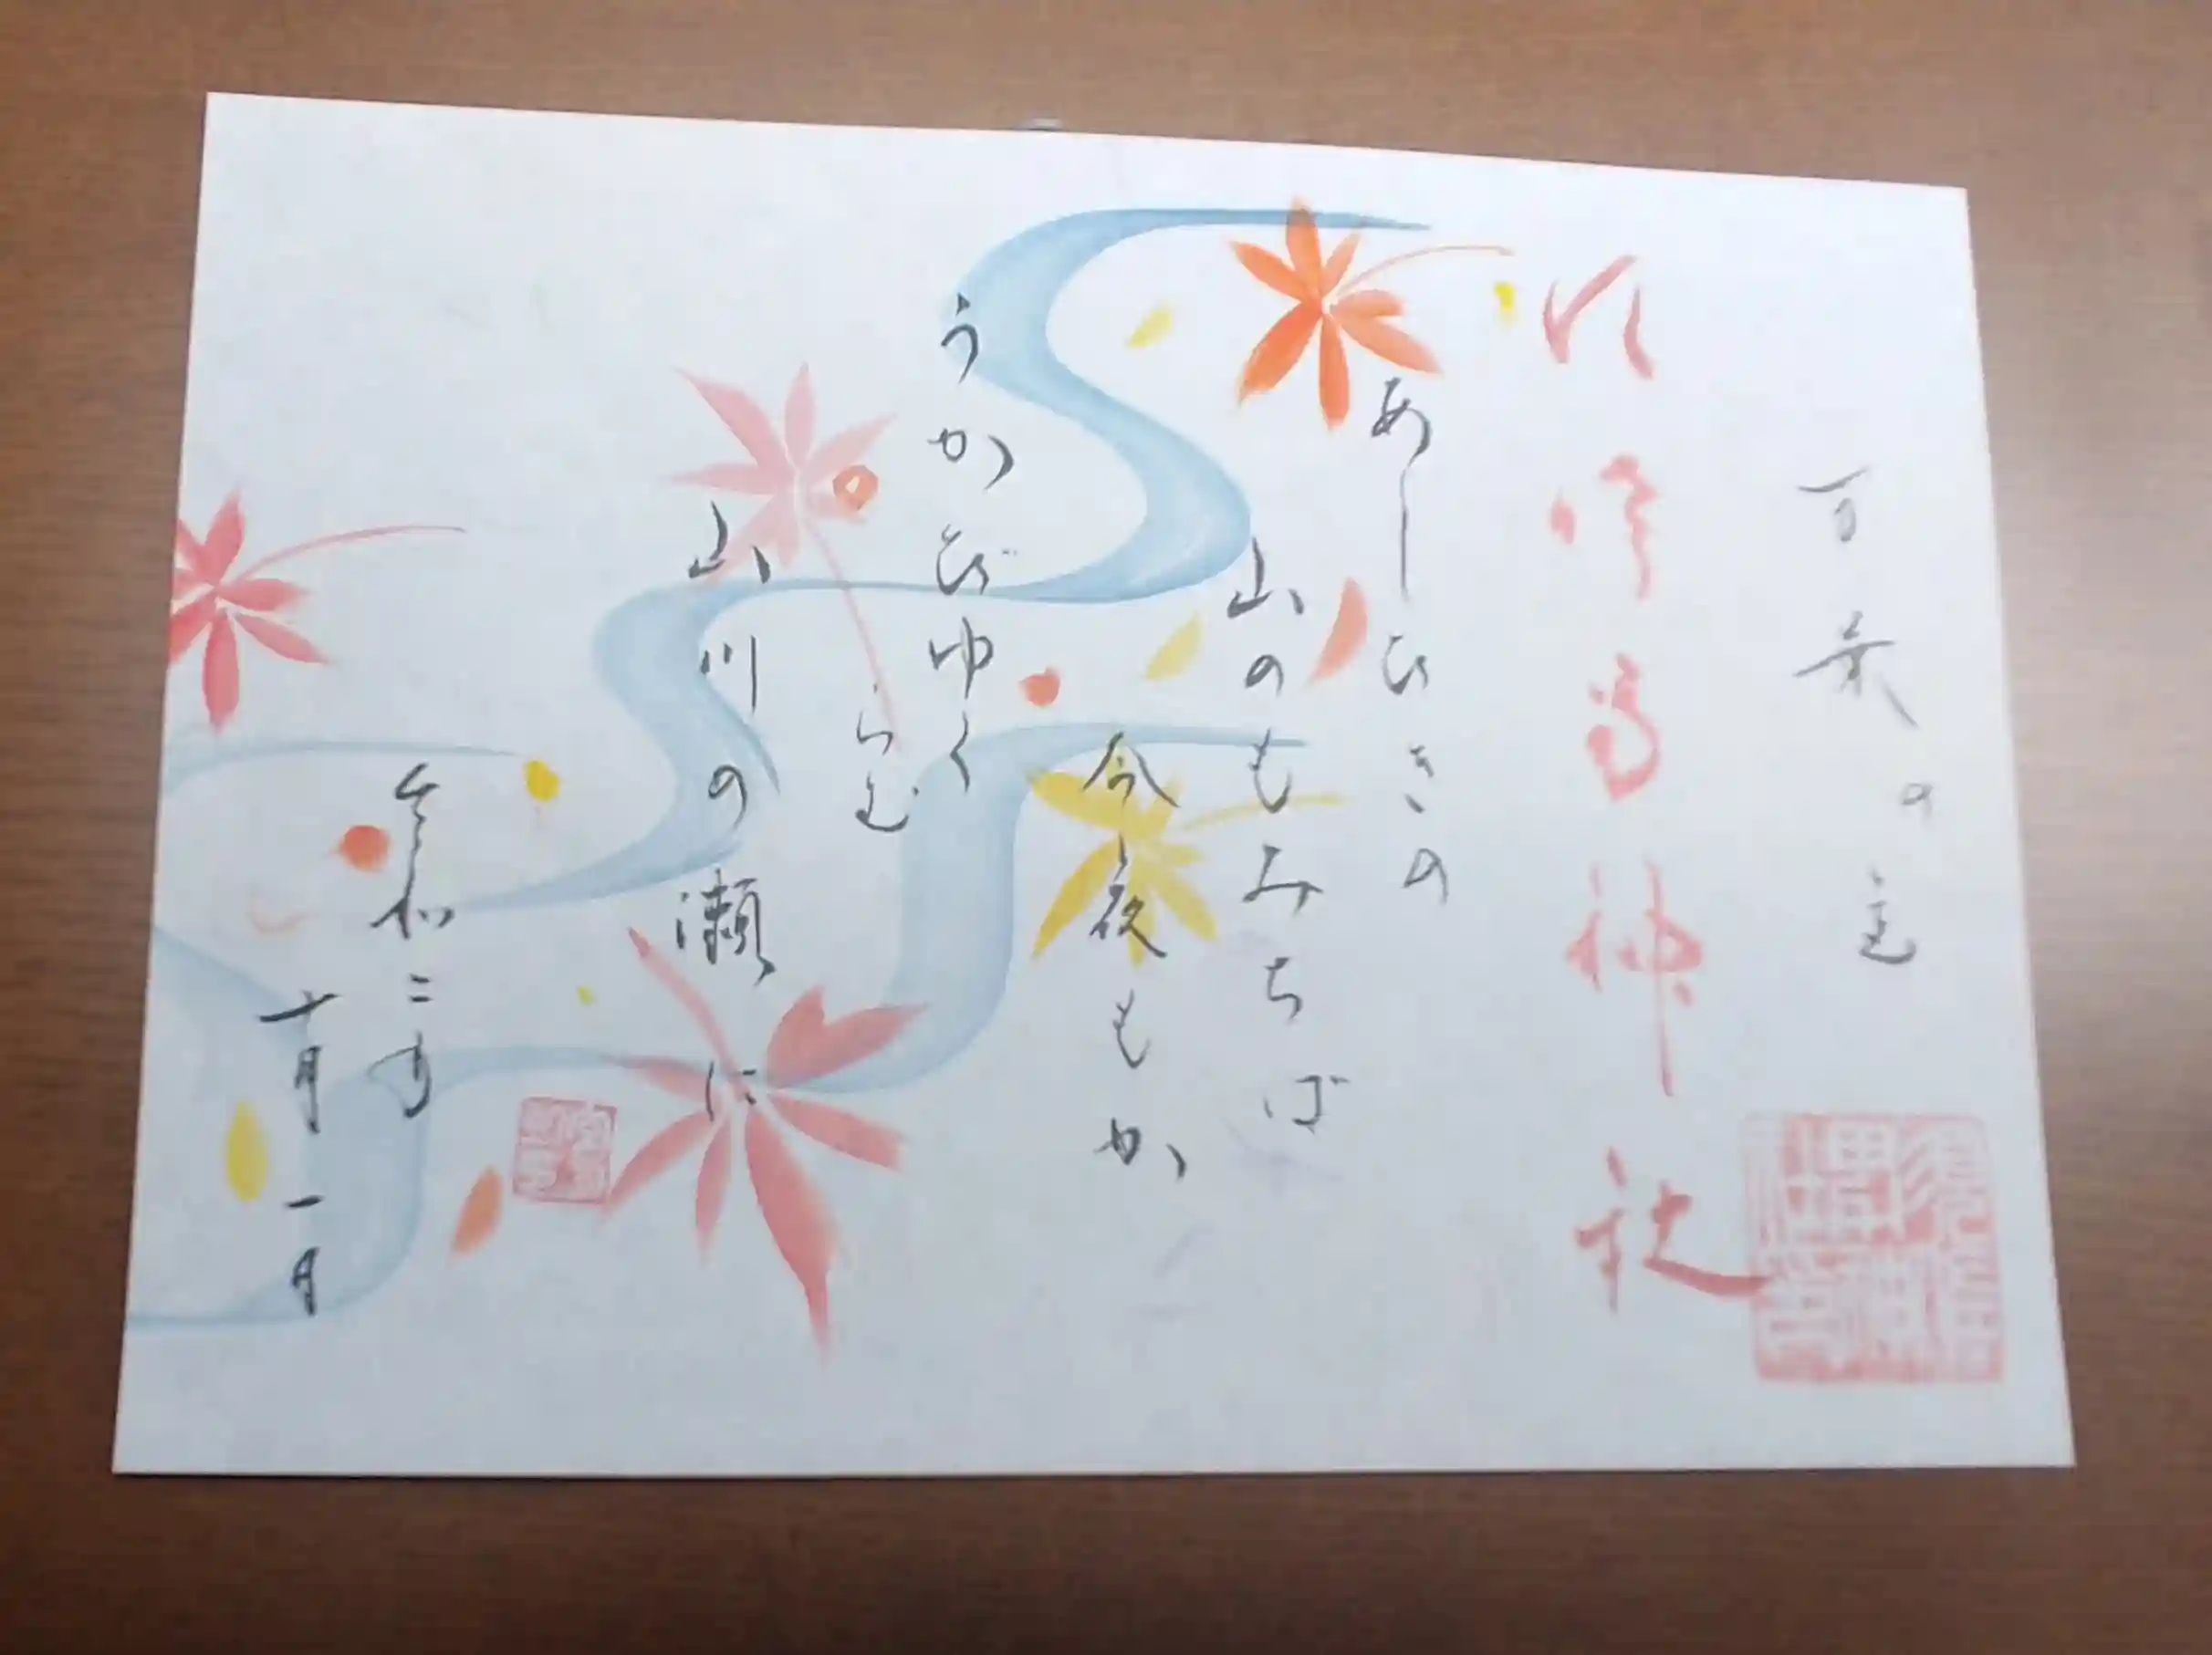 万葉の道
神社
あしひきの
山のもみちば
今夜もか
うかびゆく
らむ
山川の瀬に
令和二年
十月一日